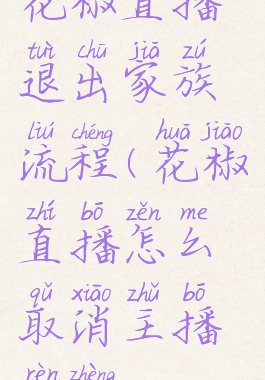 花椒直播
tuì chū jiā zú
退出家族
liú chéng huā jiāo
流程(花椒
zhí bō zěn me
直播怎么
qǔ xiāo zhǔ bō
取消主播
rèn zhèng